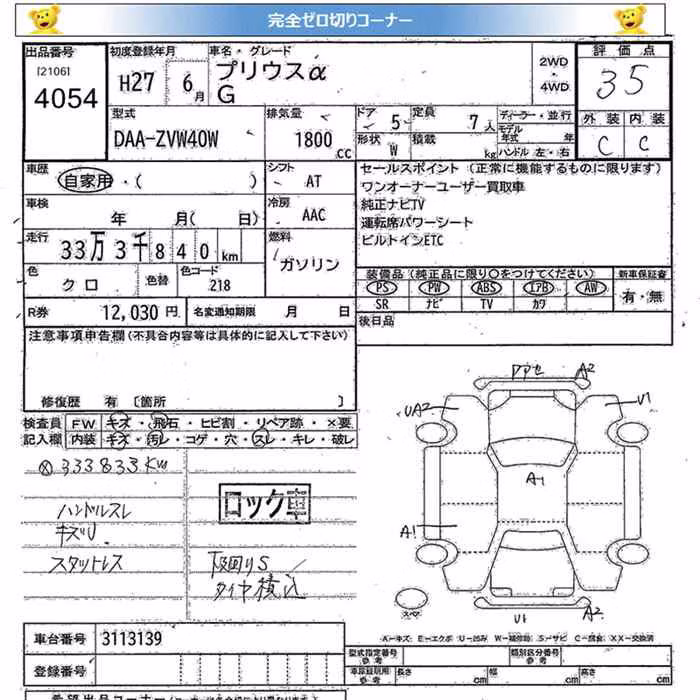 完全ゼロ切りコーナー
出品番号 初度登録年月 車名・グレード 評価点
[2106] 4054 H27 6月 プリウスα G 2WD・4WD 35
型式 排気量 ドア 5 定員 7人 ディーラー・並行 外装 内装
DAA-ZVW40W 1800cc 形状 W 積載 kg モデル年式 年 ハンドル 左・右 C C
車歴 自家用・( ) シフト AT セールスポイント(正常に機能するものに限ります)
ワンオーナーユーザー買取車
車検 年 月(日) 冷房 AAC 純正ナビTV
運転席パワーシート
走行 33万3千840km 燃料 ガソリン ビルトインETC
色 クロ 色替 色コード 218 装備品(純正品に限り○をつけてください) 新車保証書
PS PW ABS エアB AW 有・無
SR ナビ TV カワ
R券 12,030円 名変通知期限 月 日 後日品
注意事項申告欄(不具合内容等は具体的に記入して下さい)
修復歴 有 [箇所 ]
検査員 FW キズ・飛石・ヒビ割・リペア跡・×要
記入欄 内装 キズ・汚レ・コゲ・穴・スレ・キレ・破レ
333833Km
ハンドルスレ
キズU
スタットレス
ロック車
下回りS
タイヤ積込
A2
UA2 U1
A1
A1
スペア
U1 A2
A-キズ E-エクボ U-凹み W-補修跡 S-サビ C-腐食 XX-交換済
車台番号 3113139 型式指定番号 参考 類別区分番号 参考
登録番号 長さ cm 幅 cm 高さ cm